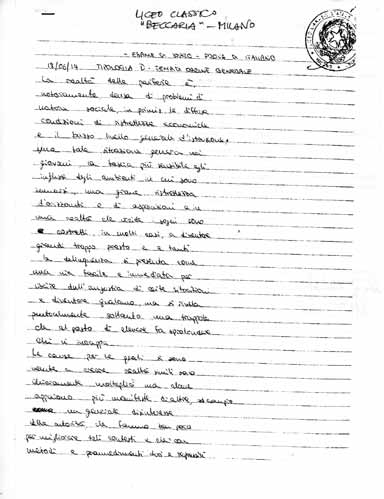 LICEO CLASSICO
"BECCARIA" - MILANO
- ESAME DI STATO - PROVA DI ITALIANO
18/06/14 TIPOLOGIA D - TEMA DI ORDINE GENERALE
La realtà delle periferie è,
notoriamente densa di problemi di
natura sociale, in primis le diffuse
condizioni di ristrettezza economica
e il basso livello generale d'istruzione.
Una tale situazione genera nei
giovani, la fascia più sensibile agli
influssi degli ambienti in cui sono
immersi, una grave ristrettezza
d'orizzonti e di aspirazioni e in
una realtà che
costretti, in molti casi, a diventare
grandi troppo presto e
la delinquenza si presenta come
una via facile e immediata per
uscire dall'angustia di
e diventare qualcuno, ma si rivela
puntualmente soltanto una trappola
che al posto di elevare fa sprofondare
chi vi incappa.
Le cause per le quali si sono
venute a creare realtà simili sono
chiaramente molteplici ma alcune
appaiono più manifeste di altre, ad esempio
un generale disinteresse
delle autorità, che fanno ben poco
per migliorare tali contesti e chi con
metodi e provvedimenti